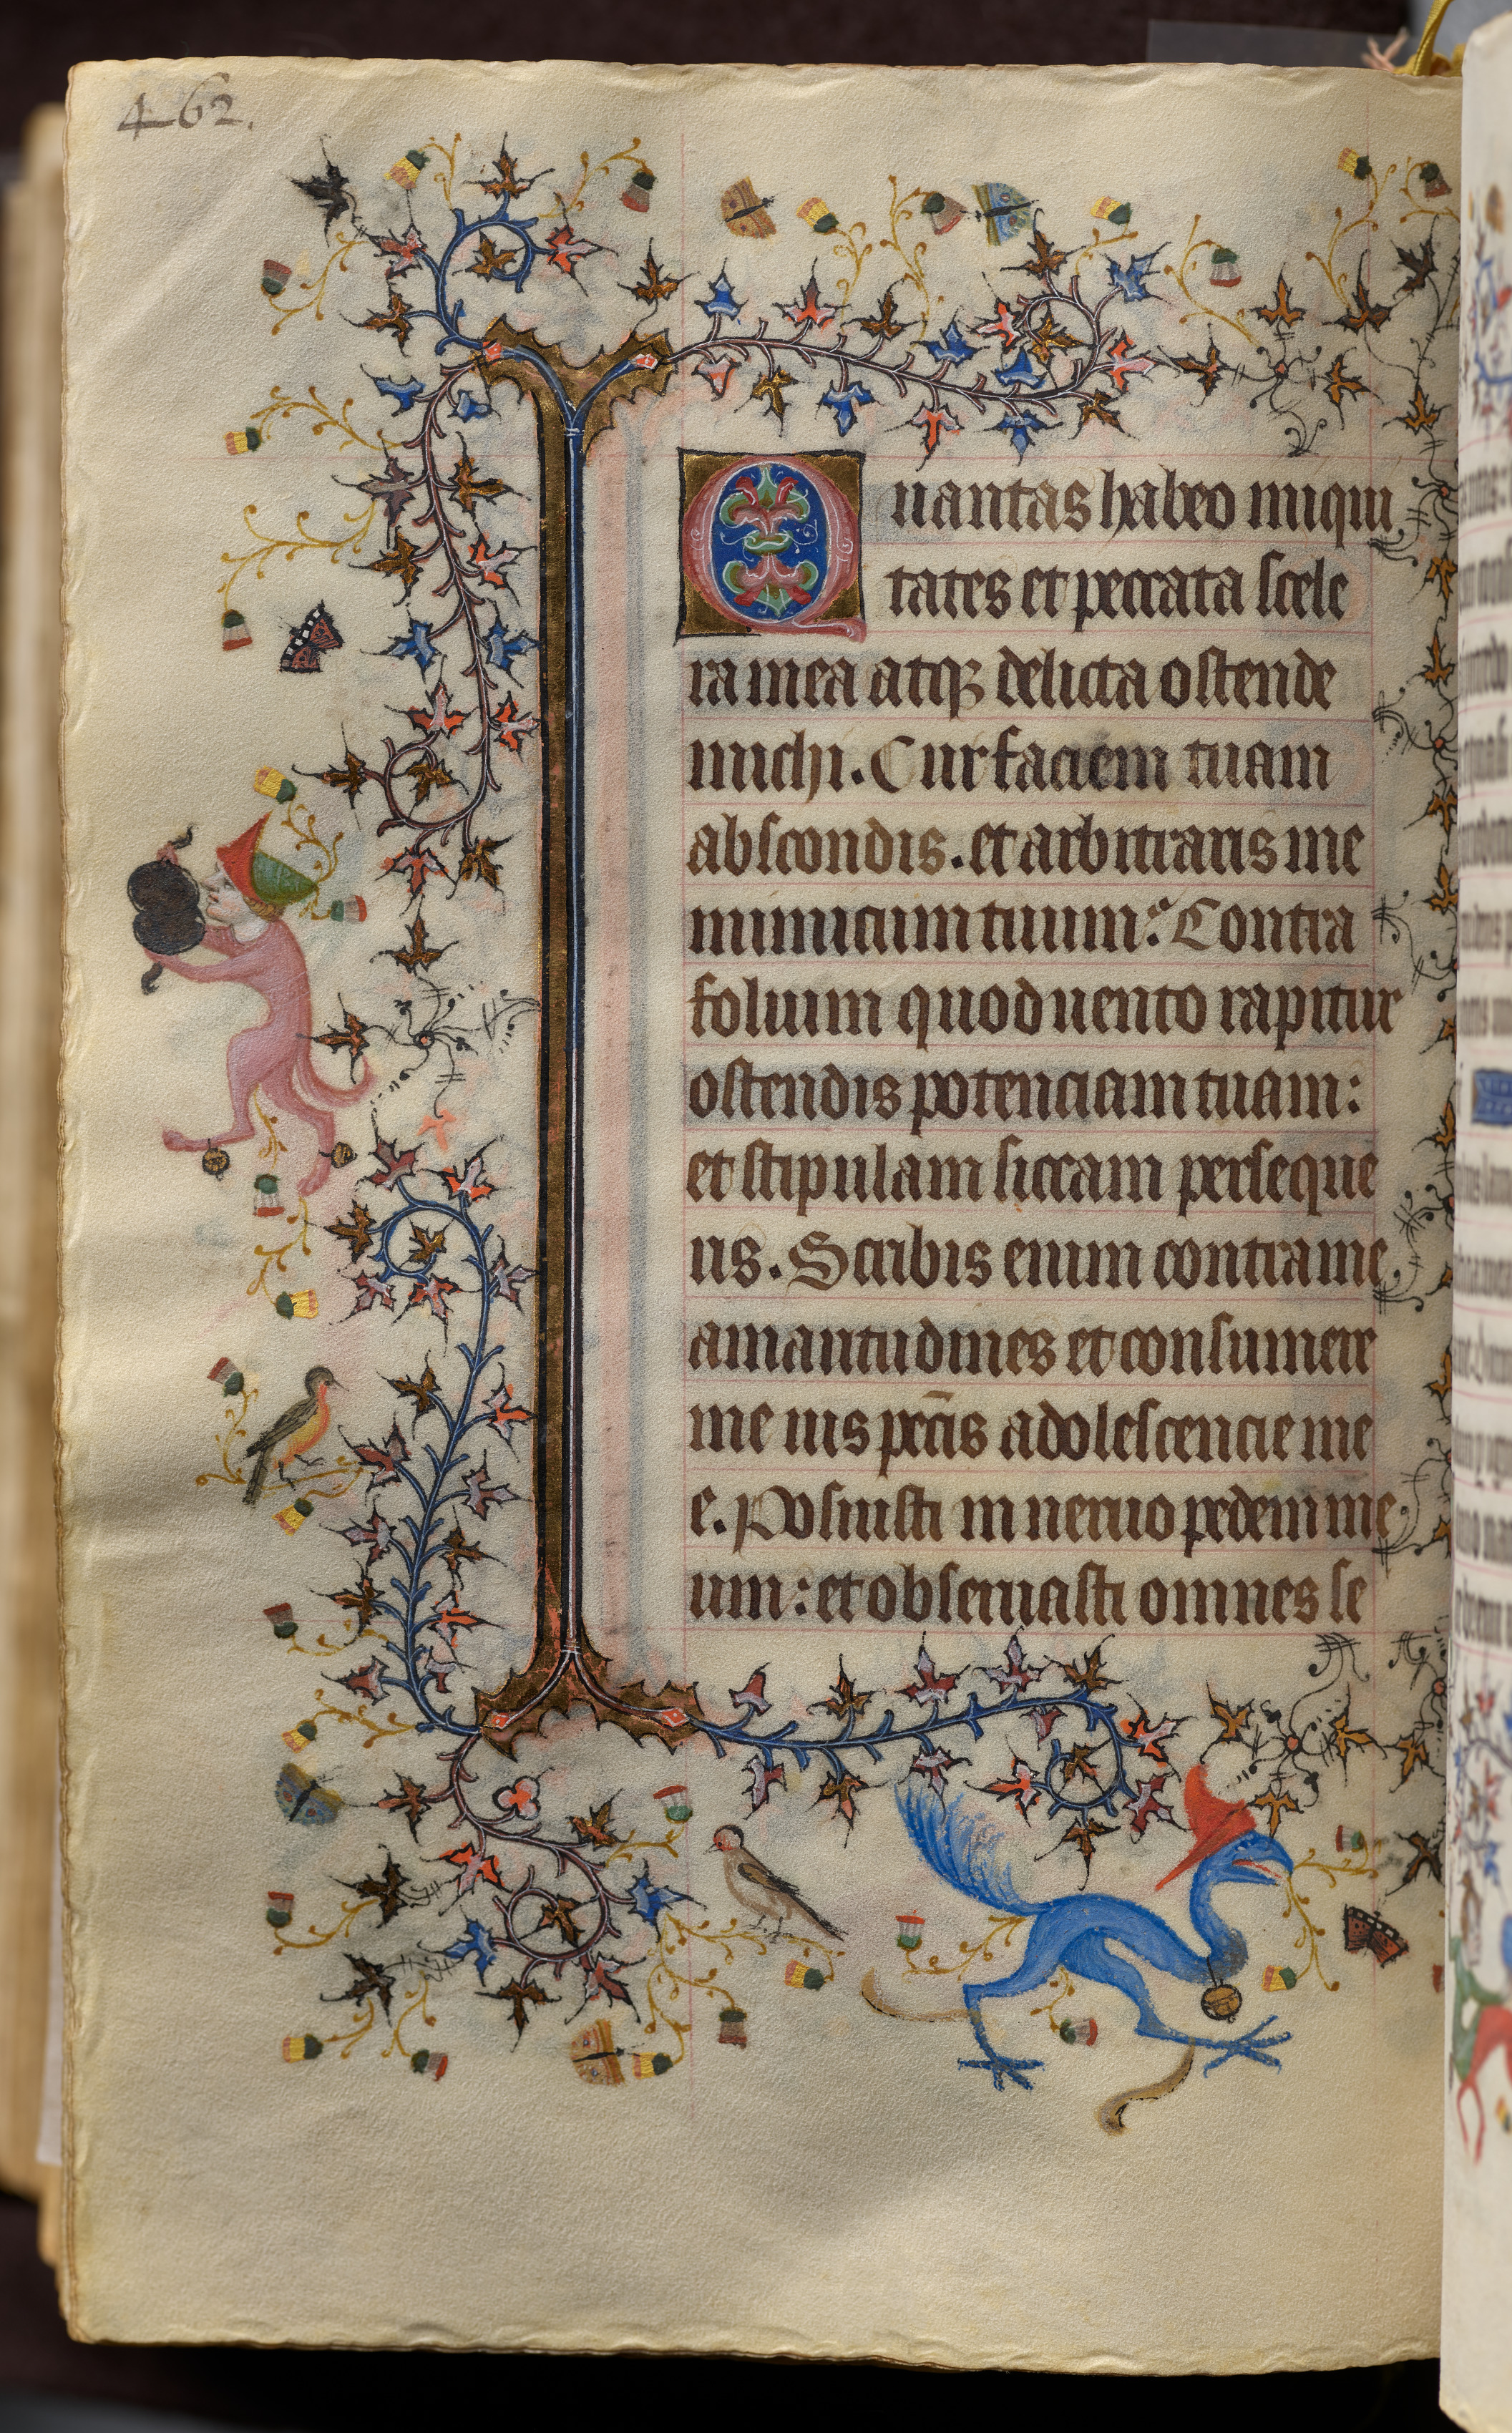 462.
Quantas habeo iniqui
tates et peccata scele
ra mea atqꝫ delicta ostende
michi. Cur faciem tuam
abscondis. et arbitraris me
inimicum tuum: Contra
folium quod uento rapitur
ostendis potenciam tuam:
et stipulam siccam perseque
ris. Scribis enim contra me
amaritudines et consumere
me uis pctīs adolescencie me
e. Posuisti in neruo pedem me
um: et obseruasti omnes se